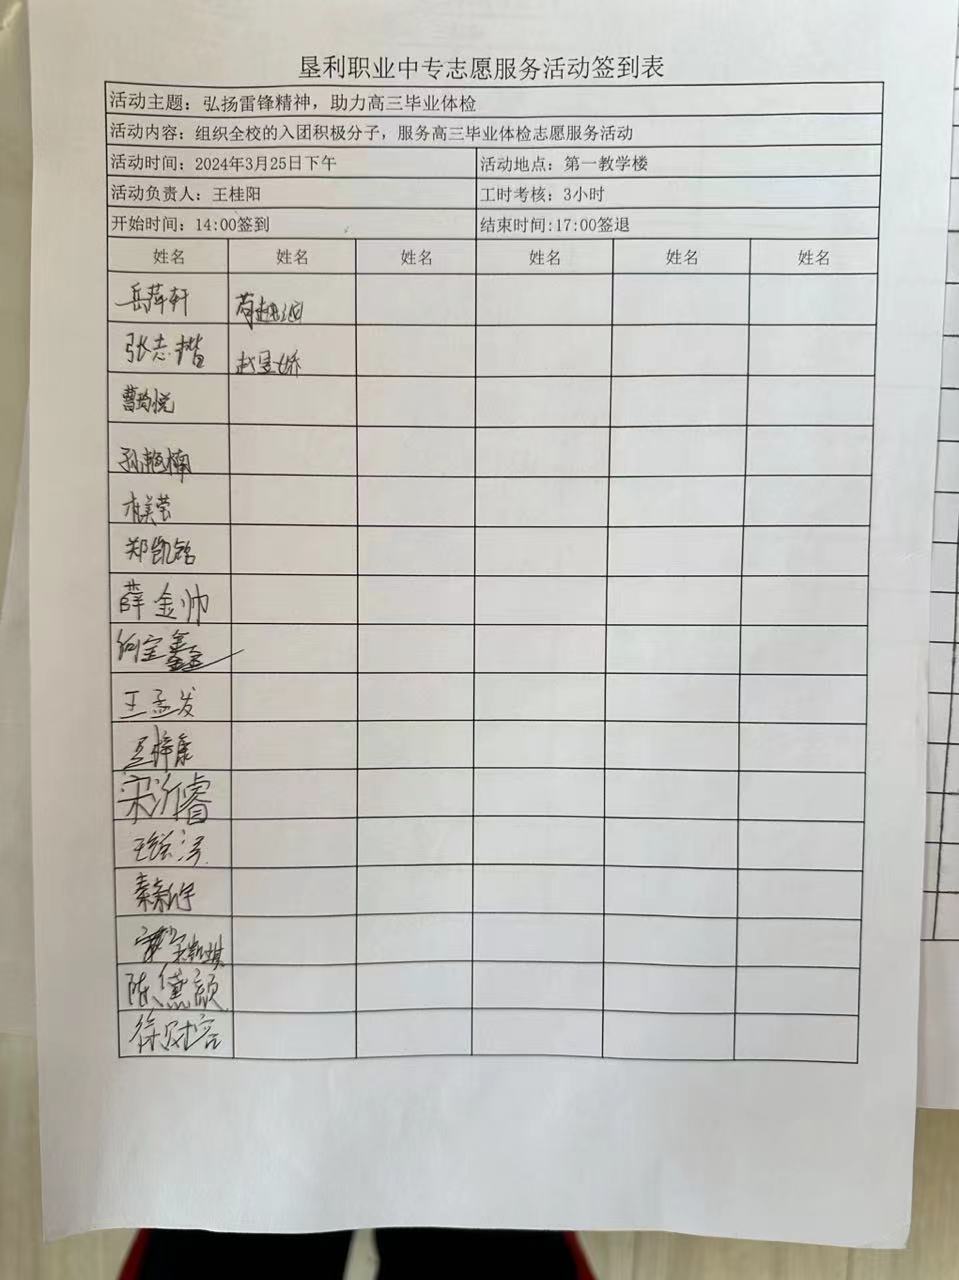 垦利职业中专志愿服务活动签到表
活动主题：弘扬雷锋精神，助力高三毕业体检
活动内容：组织全校的入团积极分子，服务高三毕业体检志愿服务活动
活动时间：2024年3月25日下午 活动地点：第一教学楼
活动负责人：王桂阳 工时考核：3小时
开始时间：14:00签到 结束时间:17:00签退
姓名 姓名 姓名 姓名 姓名 姓名
岳萍轩
张志揩 赵昱娇
曹均悦
孙艳楠
郑凯铭
薛金帅
何宝鑫
王孟发
王梓康
宋沂睿
陈黛颜